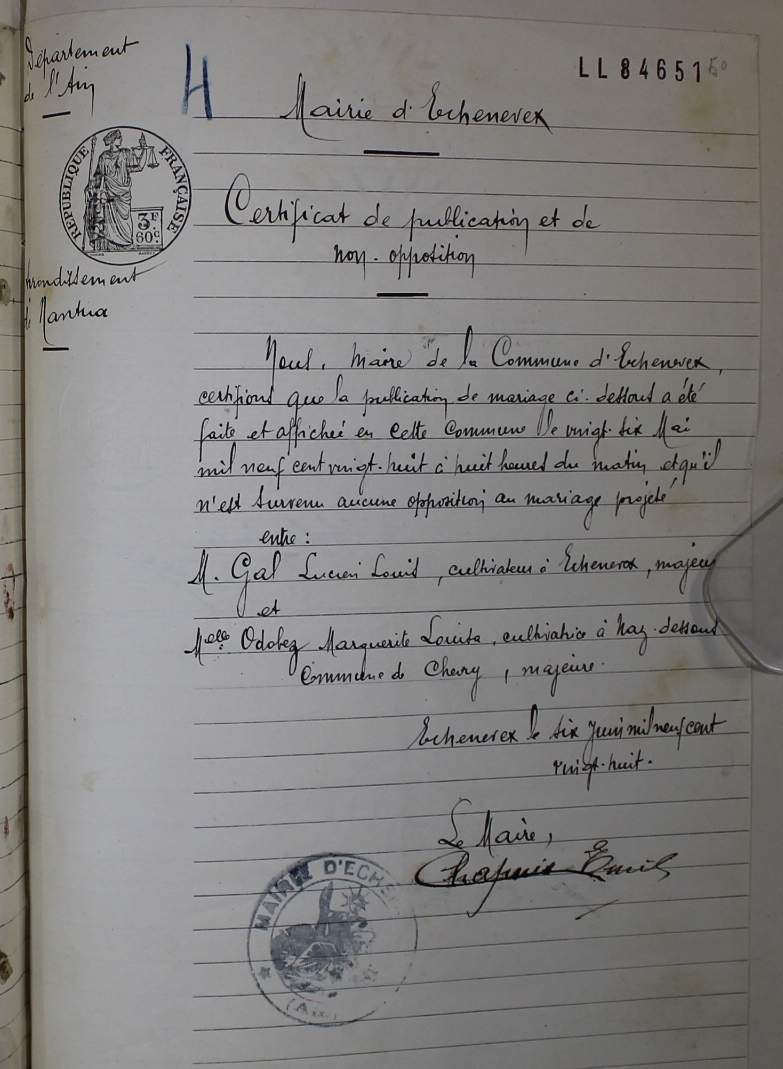 Département
de l'Ain
H
LL 84651
Mairie d'Echenevex
RÉPUBLIQUE FRANÇAISE
3F
60c
Certificat de publication et de
non-opposition
Arrondissement
de Nantua
Nous, Maire de la Commune d'Echenevex,
certifions que la publication de mariage ci-dessous a été
faite et affichée en cette Commune le vingt-six Mai
mil neuf cent vingt-huit à huit heures du matin et qu'il
n'est survenu aucune opposition au mariage projeté
entre :
M. Gal Lucien Louis, cultivateur à Echenevex, majeur
et
Melle Odobez Marguerite Louise, cultivatrice à Naz-dessous
Commune de Chevry, majeure.
Echenevex le six Juin mil neuf cent
vingt-huit.
Le Maire,
Chapuis Emile
MAIRIE D'ECHE
(Ain)